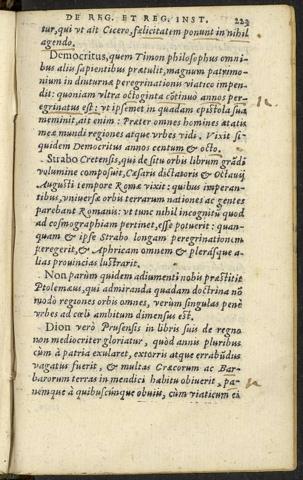 DE REG. ET REG. INST. 223
tur, qui vt ait Cicero, fœlicitatem ponunt in nihil
agendo.
Democritus, quem Timon philosophus omni-
bus aliis sapientibus prætulit, magnum patrimo-
nium in diuturnæ peregrinationis viatico impen-
dit: quoniam vltra octoginta cõtinuo annos per-
egrinatus est: vt ipsemet in quadam epistola sua
meminit, ait enim: Præter omnes homines ætatis
meæ mundi regiones atque vrbes vidi. Vixit si-
quidem Democritus annos centum & octo.
Strabo Cretensis, qui de situ orbis librum grãdi
volumine composuit, Cæsaris dictatoris & Octauij
Augusti tempore Romæ vixit: quibus imperan-
tibus, vniuersæ orbis terrarum nationes ac gentes
parebant Romanis: vt tunc nihil incognitũ quod
ad cosmographiam pertinet, esse potuerit: quan-
quam & ipse Strabo longam peregrinationem
peregerit, & Aphricam omnem & plerasque a-
lias prouincias lustrarit.
Non parùm quidem adiumenti nobis præstitit
Ptolemæus, qui admiranda quadam doctrina nõ
modò regiones orbis omnes, verùm singulas penè
vrbes ad cœli ambitum dimensus est.
Dion verò Prusensis in libris suis de regno
non mediocriter gloriatur, quòd annis pluribus
cùm à patria exularet, extorris atque errabũdus
vagatus fuerit, & multas Græcorum ac Bar-
barorum terras in mendici habitu obiuerit, pa-
nemque à quibuscũnque obuiis, cùm viaticum ei